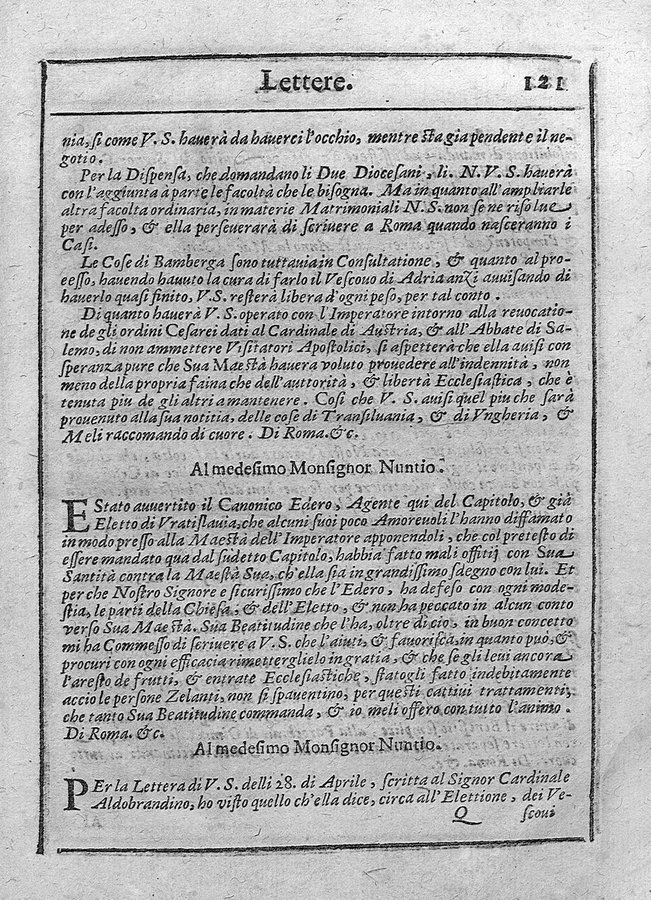 Lettere. 121
nia, si come V. S. hauerà da hauerci l'occhio, mentre sta gia pendente il ne-
gotio.
Per la Dispensa, che domandano li Due Diocesani, li. N. V. S. hauerà
con l'aggiunta à parte le facoltà che le bisogna. Ma in quanto all'ampliarle
altra facolta ordinaria, in materie Matrimoniali N. S. non se ne risolue
per adesso, & ella perseuerarà di scriuere a Roma quando nasceranno i
Casi.
Le Cose di Bamberga sono tuttauia in Consultatione, & quanto al pro-
eesso, hauendo hauuto la cura di farlo il Vescouo di Adrianzi auuisando di
hauerlo quasi finito, V. S. resterà libera d'ogni peso, per tal conto.
Di quanto hauerà V. S. operato con l'Imperatore intorno alla reuocatio-
ne de gli ordini Cesarei dati al Cardinale di Austria, & all'Abbate di Sa-
lemo, di non ammettere Visitatori Apostolici, si aspetterà che ella auisi con
speranza pure che Sua Maestà hauera voluto prouedere all'indennità, non
meno della propria faina che dell'auttorità, & libertà Ecclesiastica, che è
tenuta piu de gli altri a mantenere. Cosi che V. S. auisi quel piu che sarà
prouenuto alla sua notitia, delle cose di Transiluania, & di Vngheria, &
Meli raccomando di cuore. Di Roma. &c.
Al medesimo Monsignor Nuntio.
E Stato auuertito il Canonico Edero, Agente qui del Capitolo, & già
Eletto di Vratislauia, che alcuni suoi poco Amoreuoli l'hanno diffamato
in modo presso alla Maestà dell'Imperatore apponendoli, che col pretesto di
essere mandato qua dal sudetto Capitolo, habbia fatto mali offitij con Sua
Santità contra la Maestà Sua, ch'ella sia in grandissimo sdegno con lui. Et
per che Nostro Signore e sicurissimo che l'Edero, ha defeso con ogni mode-
stia, le parti della Chiesa, & dell'Eletto, & non ha peccato in alcun conto
verso Sua Maestà. Sua Beatitudine che l'ha, oltre di cio, in buon concetto
mi ha Commesso di scriuere a V. S. che l'aiuti, & fauorisca, in quanto può, &
procuri con ogni efficacia rimetterglielo in gratia, & che se gli leui ancora
l'aresto de frutti, & entrate Ecclesiastiche, statogli fatto indebitamente
accio le persone Zelanti, non si spauentino, per questi cattiui trattamenti,
che tanto Sua Beatitudine commanda, & io meli offero con tutto l'animo.
Di Roma. &c.
Al medesimo Monsignor Nuntio.
PEr la Lettera di V. S. delli 28. di Aprile, scritta al Signor Cardinale
Aldobrandino, ho visto quello ch'ella dice, circa all'Elettione, dei Ve-
Q scoui